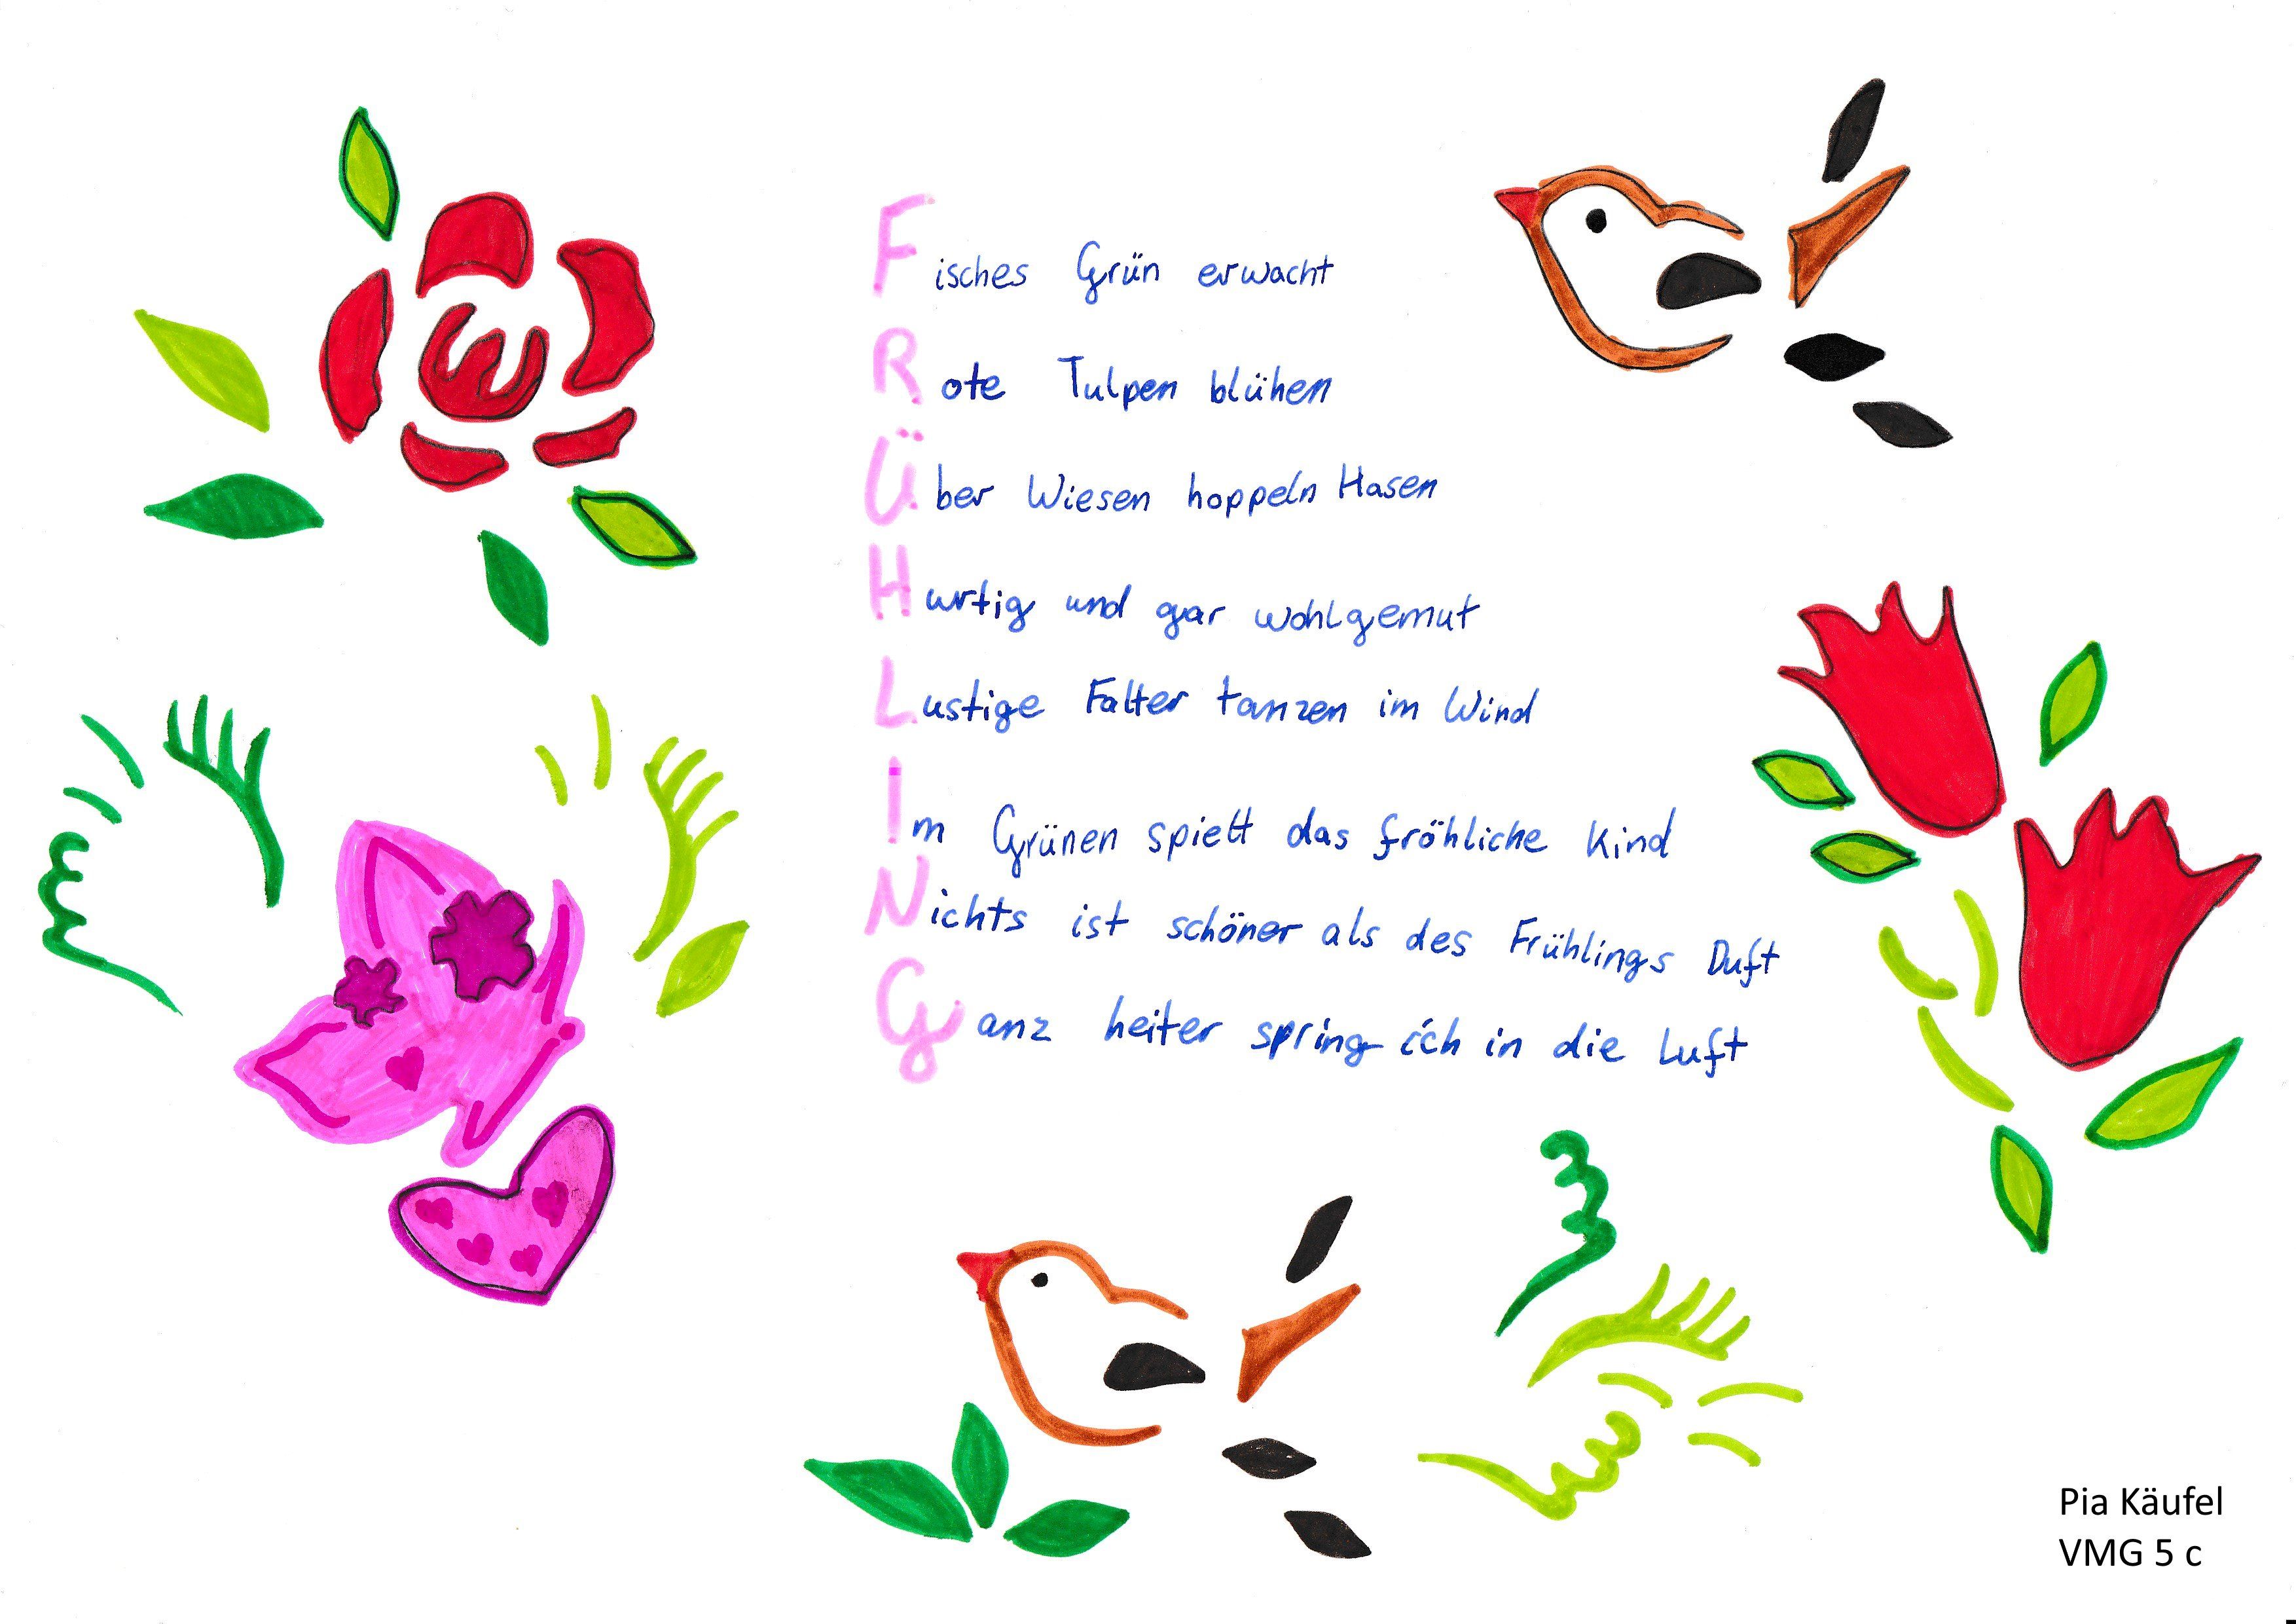 Fisches Grün erwacht
Rote Tulpen blühen
Über Wiesen hoppeln Hasen
Hurtig und gar wohlgemut
Lustige Falter tanzen im Wind
Im Grünen spielt das fröhliche Kind
Nichts ist schöner als des Frühlings Duft
Ganz heiter spring ich in die Luft
Pia Käufel
VMG 5 c